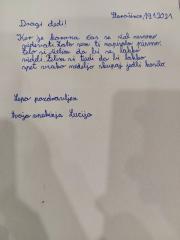 Starošince, 19.1.2021
Dragi dedi!
Ker je korona čas se več ne moremo
videvati. Zato sem ti napisala pismo.
Zelo si želim da bi se lahko
videli. Želim si tudi da bi lahko
spet vsako nedeljo skupaj jedli kosilo.
Lepo pozdravljen
tvoja vnukinja Lucija